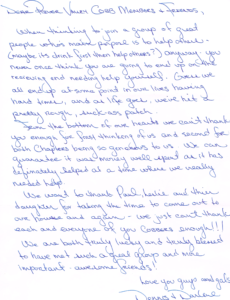 Dear Power Valley COBS Members & Friends,
When thinking to join a group of great
people who's main purpose is to help others
(maybe its don't just help others?) anyway you
never once think you are going to end up on the
receiving end needing help yourself. Guess we
all end up at some point in our lives having
hard times, and as life goes, we've hit a
pretty rough, suck-ass patch.
From the bottom of our hearts we can't thank
you enough for first thinking of us and second for
both Chapters being so generous to us. We can
guarantee it was money well spent as it has
definately helped at a time where we really
needed help!
We want to thank Paul, Katie and their
daughter for taking the time to come out to
our house and again - we just can't thank
each and everyone of you Cossers enough!!!
We are both truly lucky and truly blessed
to have met such a great group and more
important - awesome friends!
Love you guys and gals
Dennis & Darlene